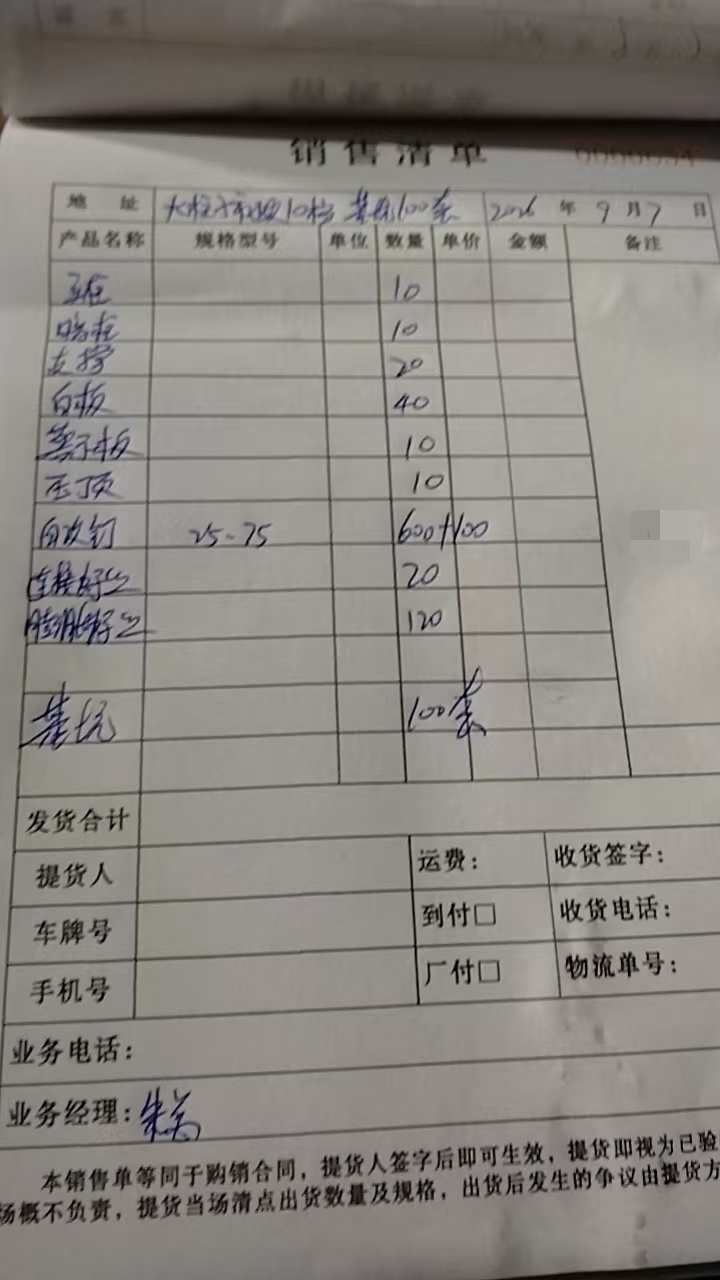 销售清单
地 址 基坑100套 2026 年 9 月 7 日
产品名称 规格型号 单位 数量 单价 金额 备注
10
暗柱 10
支撑 20
白板 40
10
压顶 10
自攻钉 25-75 600+100
连接好丝 20
膨胀好丝 120
基坑 100套
发货合计
提货人 运费: 收货签字:
车牌号 到付□ 收货电话:
手机号 厂付□ 物流单号:
业务电话:
业务经理:朱
本销售单等同于购销合同，提货人签字后即可生效，提货即视为已验
场概不负责，提货当场清点出货数量及规格，出货后发生的争议由提货方